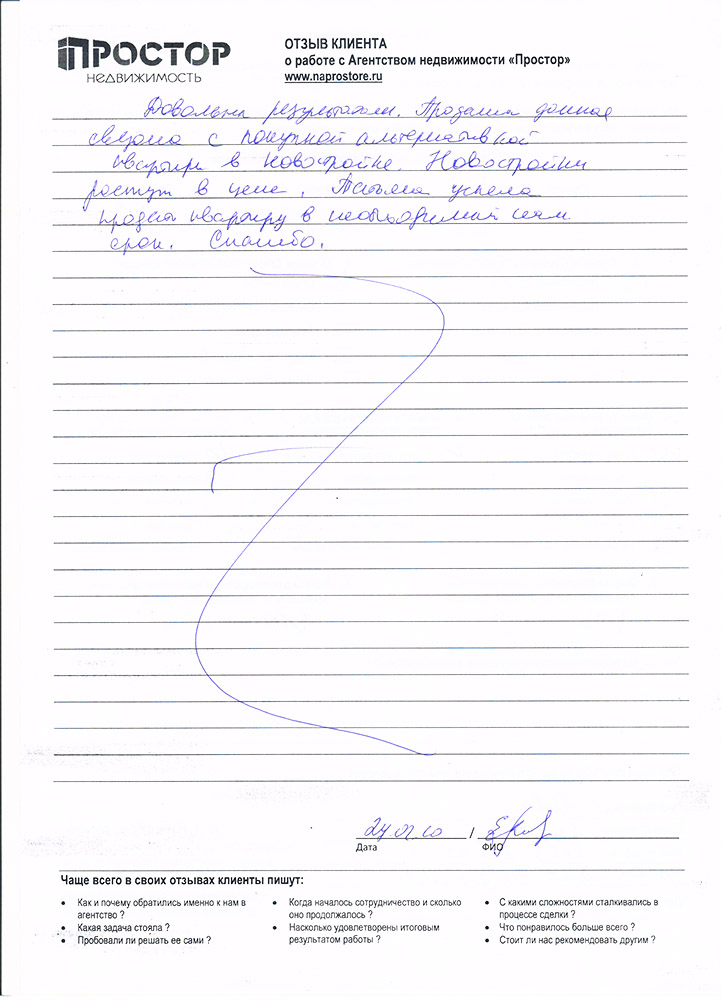 ПРОСТОР
НЕДВИЖИМОСТЬ
ОТЗЫВ КЛИЕНТА
о работе с Агентством недвижимости «Простор»
www.naprostore.ru
Довольны результатом. Продажа данная
связана с покупкой альтернативной
квартиры в новостройке. Новостройки
растут в цене. Татьяна успела
продать квартиру в необходимый нам
срок. Спасибо.
Дата
/
ФИО
Чаще всего в своих отзывах клиенты пишут:
• Как и почему обратились именно к нам в
агентство ?
• Какая задача стояла ?
• Пробовали ли решать ее сами ?
• Когда началось сотрудничество и сколько
оно продолжалось ?
• Насколько удовлетворены итоговым
результатом работы ?
• С какими сложностями сталкивались в
процессе сделки ?
• Что понравилось больше всего ?
• Стоит ли нас рекомендовать другим ?